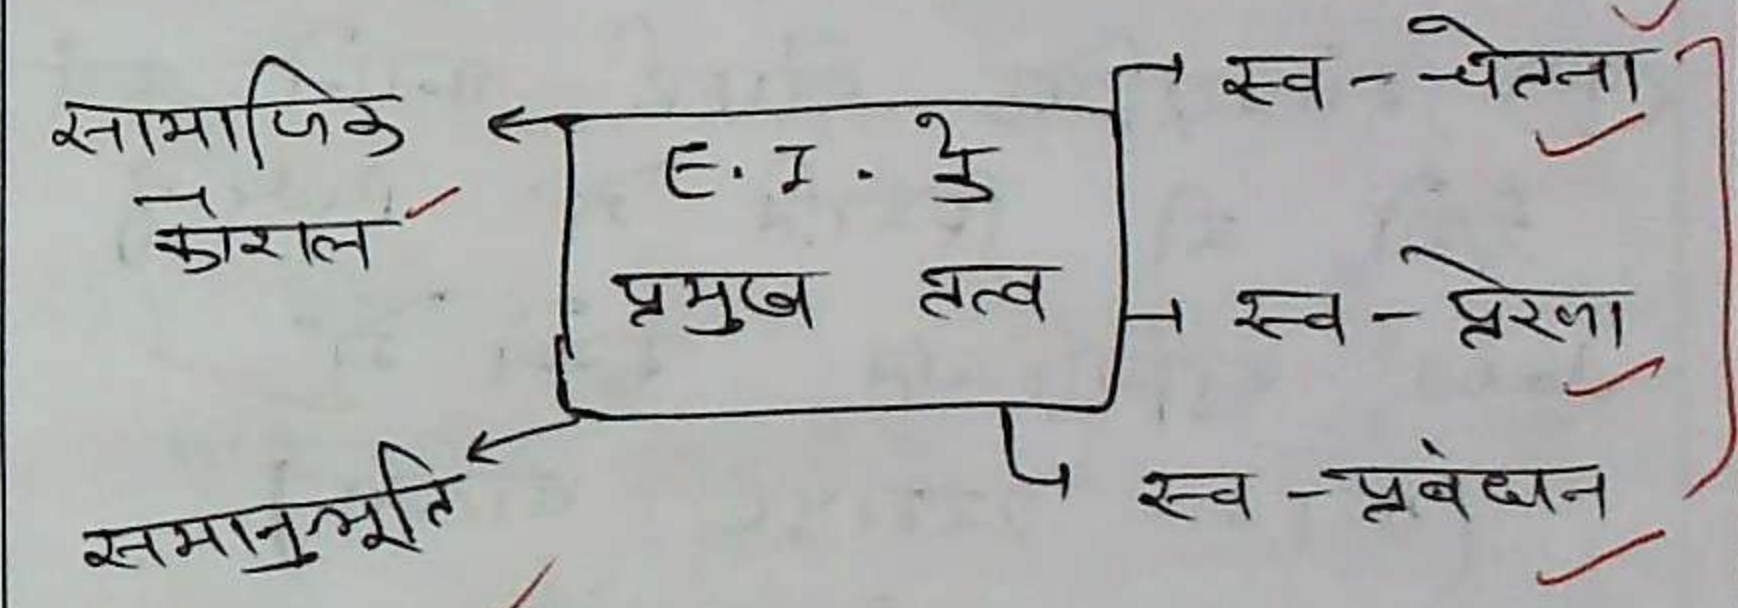 सामाजिक
कौशल
E. I. के
प्रमुख तत्व
स्व - चेतना
स्व - प्रेरणा
स्व - प्रबंधन
समानुभूति